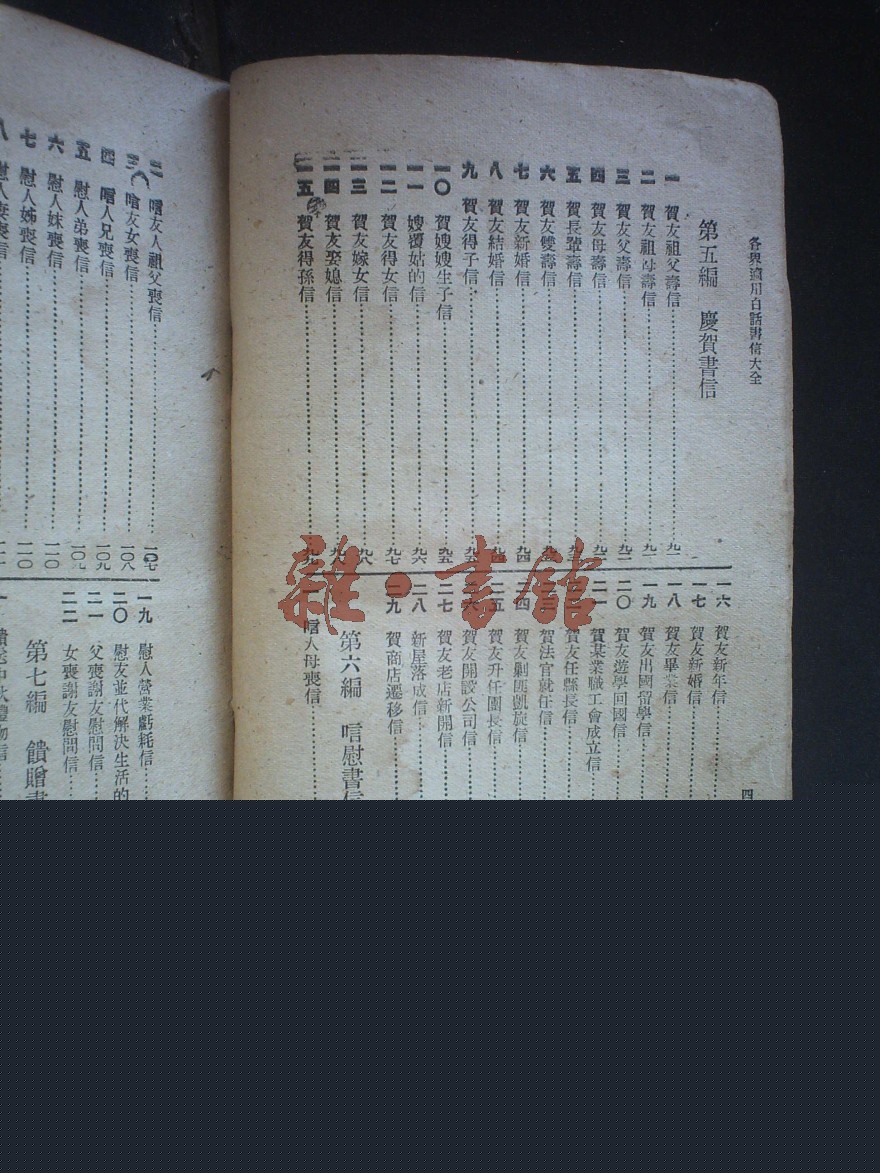 各界適用白話書信大全
第五編 慶賀書信
一 賀友祖父壽信 九一
二 賀友祖母壽信 九一
三 賀友父壽信 九一
四 賀友母壽信
五 賀長輩壽信
六 賀友雙壽信
七 賀友新婚信 九四
八 賀友結婚信 九四
九 賀友得子信 九五
一〇 賀嫂嫂生子信 九五
一一 嫂覆姑的信 九六
一二 賀友得女信 九七
一三 賀友嫁女信 九八
一四 賀友娶媳信
一五 賀友得孫信
一六 賀友新年信
一七 賀友新婚信
一八 賀友畢業信
一九 賀友出國留學信
二〇 賀友遊學回國信
二一 賀某業職工會成立信
賀友任縣長信
二三 賀法官就任信
二四 賀友剿匪凱旋信
二五 賀友升任團長信
二六 賀友開設公司信
二七 賀友老店新開信
二八 新屋落成信
二九 賀商店遷移信
第六編 唁慰書信
一 唁人母喪信
四
二 唁友人祖父喪信 一〇七
三 唁友女喪信 一〇八
四 唁人兄喪信 一〇九
五 慰人弟喪信 一〇九
六 慰人妹喪信 一一〇
七 慰人姊喪信 一一〇
八 慰人妻喪信
一九 慰人營業虧耗信
二〇 慰友並代解決生活的
二一 父喪謝友慰問信
二二 女喪謝友慰問信
第七編 饋贈書
雜·書館